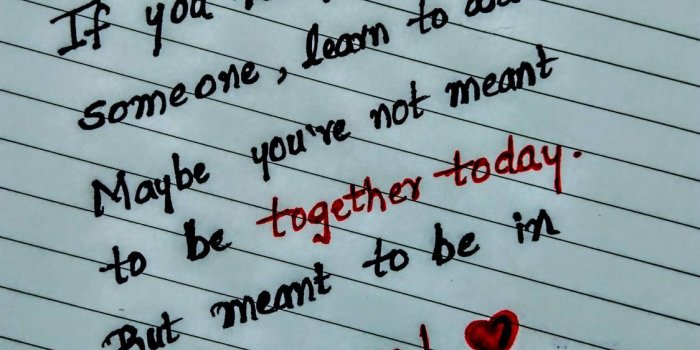 If you
someone, learn to
Maybe you're not meant
to be together today.
But meant to be in